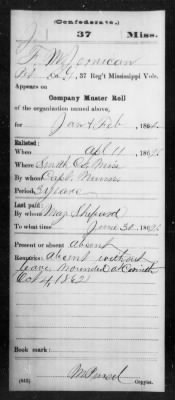 (Confederate.)
J 37 Miss.
F. M. Jernigan
Pvt Co. G, 37 Reg't Mississippi Vols.
Appears on
Company Muster Roll
of the organization named above,
for Jan & Feb, 186
Enlisted:
When Apl 11, 186
Where Smith Co Miss
By whom Capt.
Period 3 years
Last paid:
By whom Maj. Shepard
To what time June 30, 1862
Present or absent absent
Remarks: absent without
leave wounded at Corinth
Oct 4, 1862
Book mark:
(642) Copyist.